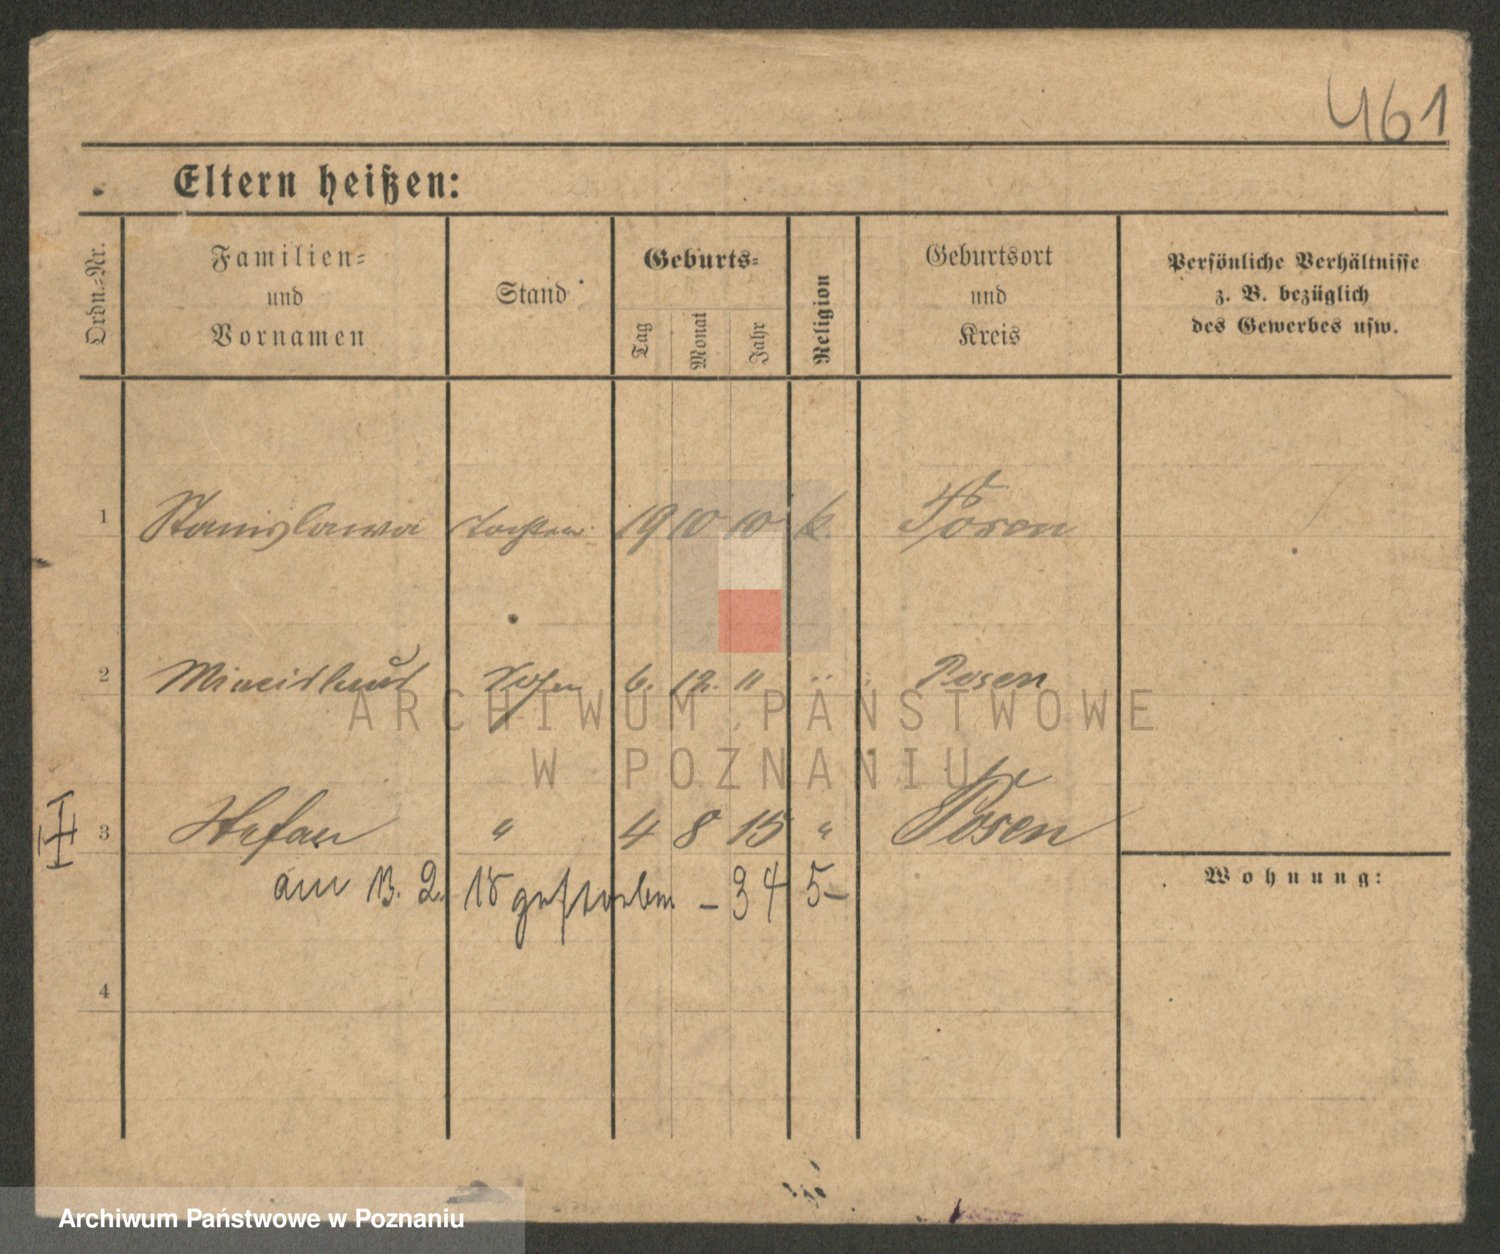 461
Eltern heißen:
Ordn.-Nr.
Familien-
und
Vornamen
Stand
Geburts-
Tag
Monat
Jahr
Religion
Geburtsort
und
Kreis
Persönliche Verhältnisse
z. B. bezüglich
des Gewerbes usw.
1 Stanislawa Tochter 19 10 10 k. Posen
2 6. 12. " " Posen
ARCHIWUM PAŃSTWOWE
W POZNANIU
3 Stefan " 4 8 15 " Posen
am 13. 2. 18 gestorben – 345–
Wohnung:
4
Archiwum Państwowe w Poznaniu